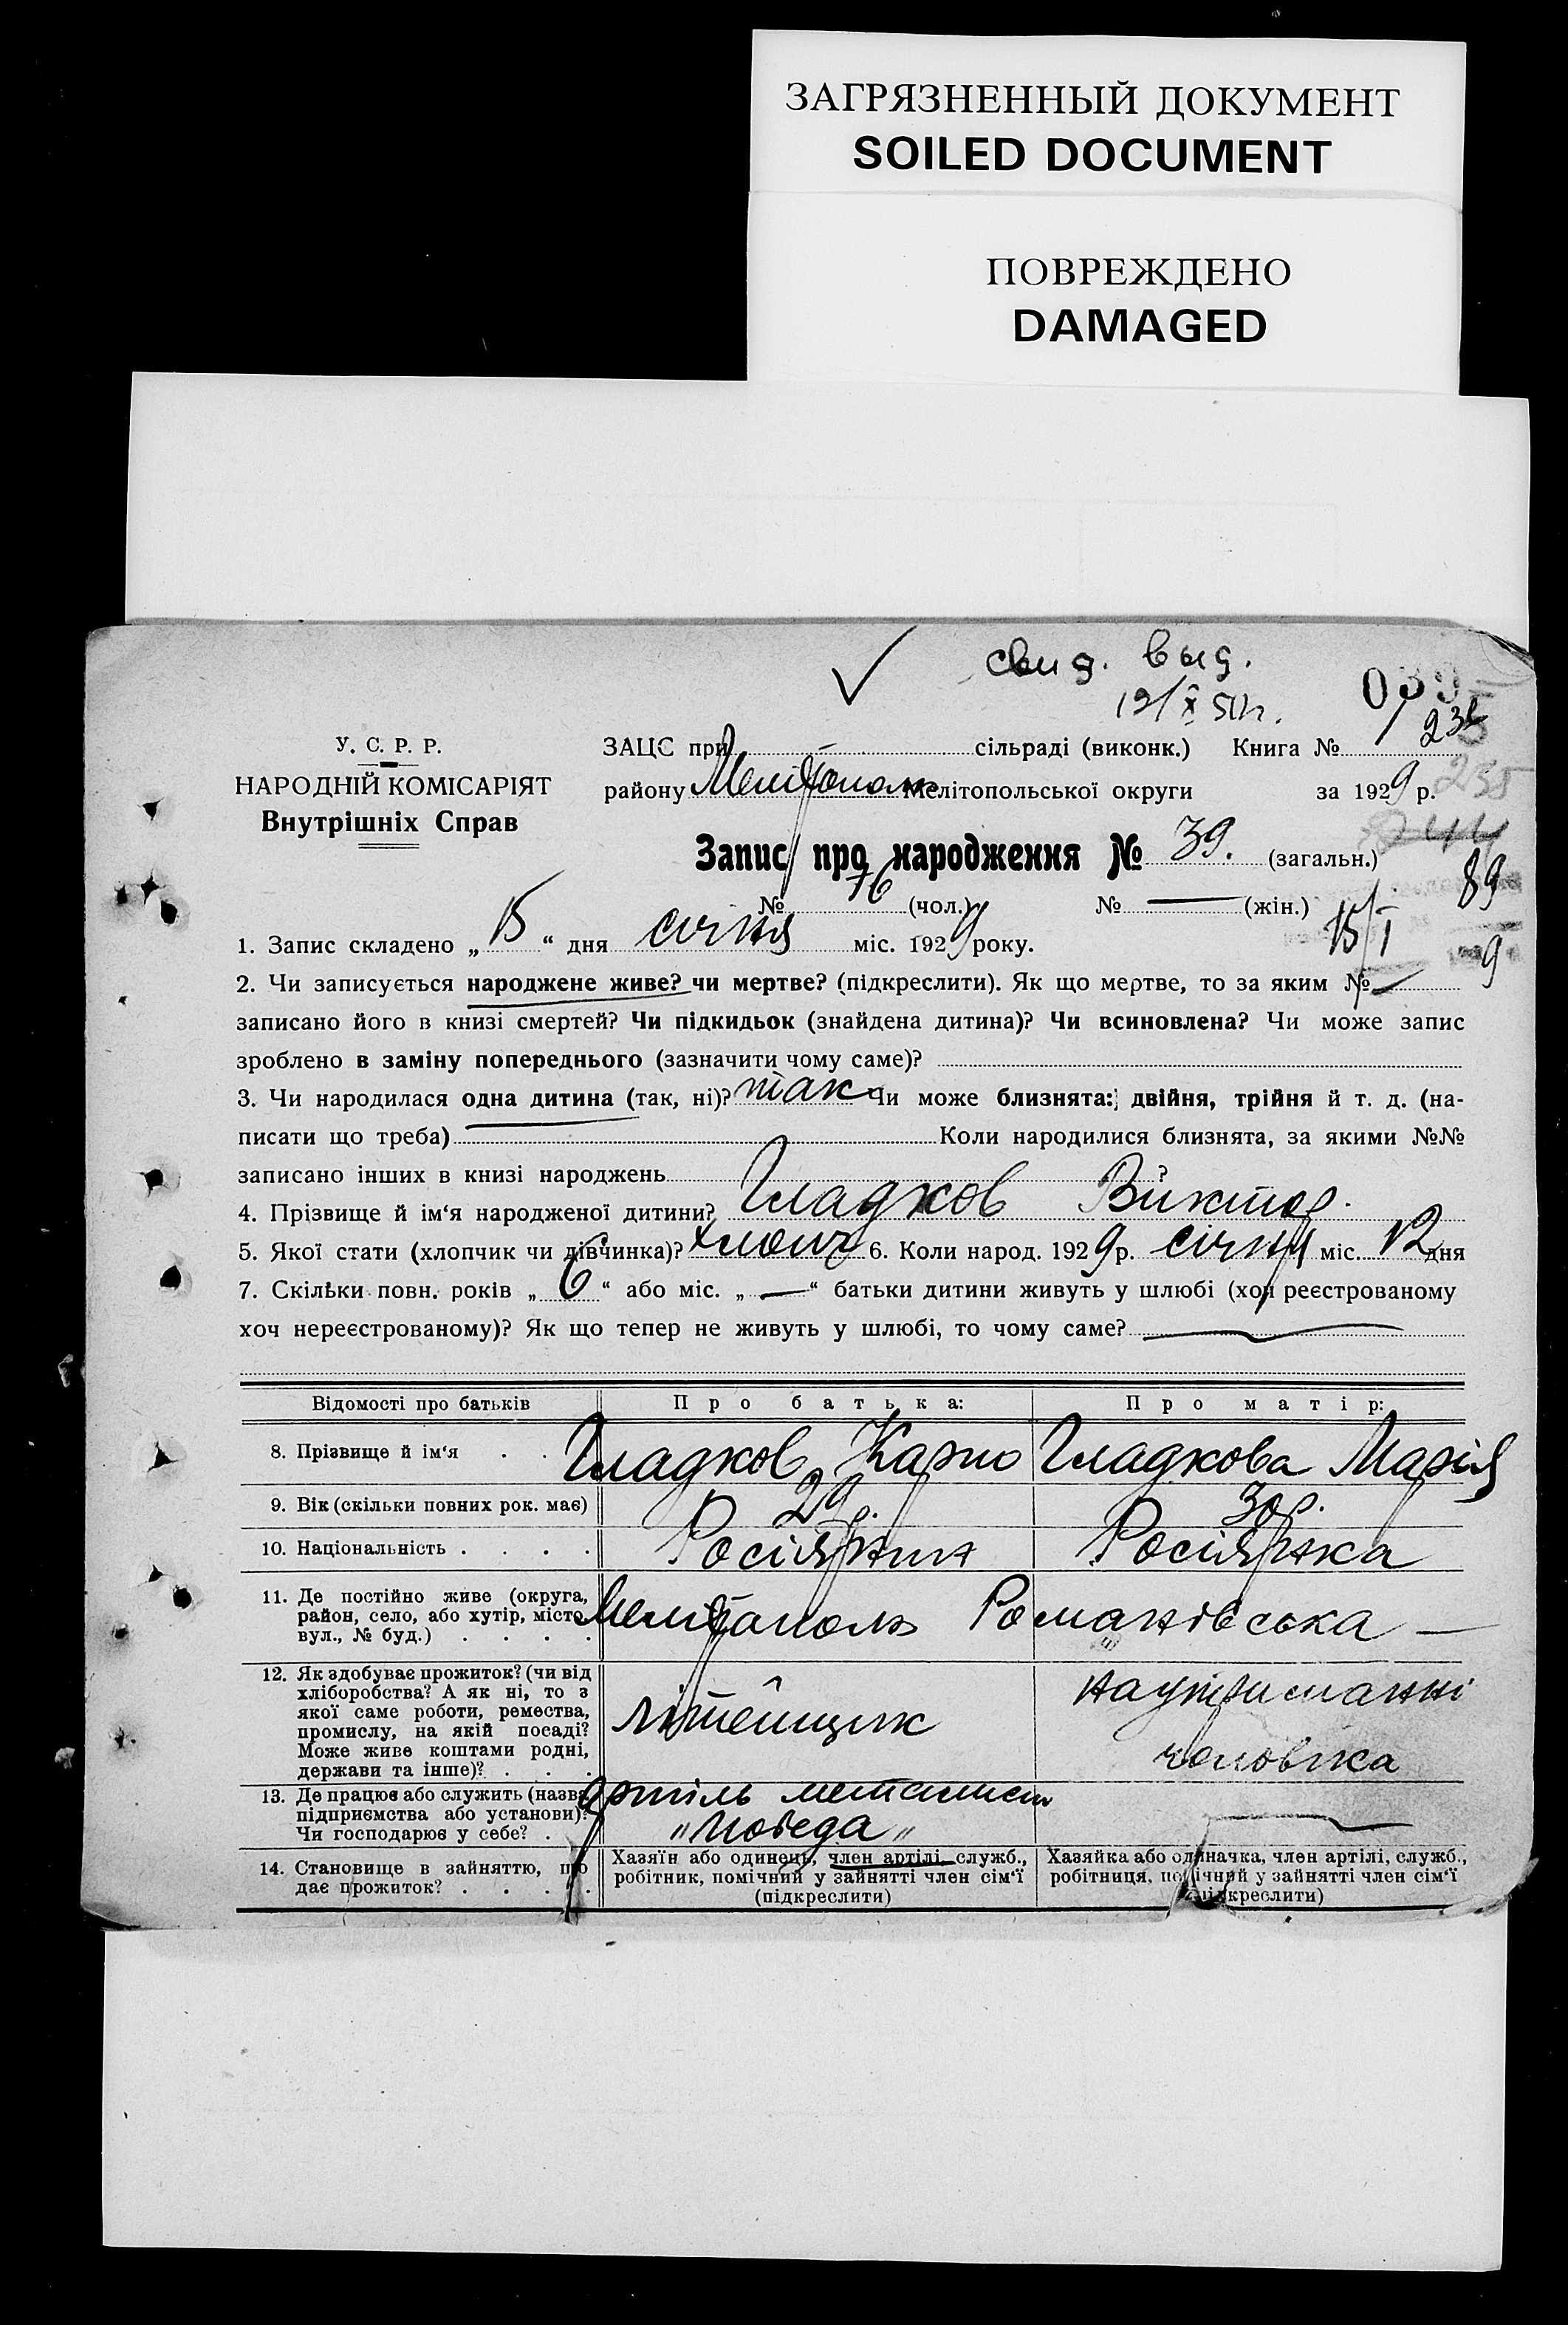 ЗАГРЯЗНЕННЫЙ ДОКУМЕНТ
SOILED DOCUMENT
ПОВРЕЖДЕНО
DAMAGED
свид. выд.
12/X 51г.
У. С. Р. Р.
НАРОДНІЙ КОМІСАРІЯТ
Внутрішніх Справ
ЗАЦС при — сільраді (виконк.) Книга № 1
району Мелітополь Мелітопольської округи за 1929 р.
235
Запис про народження № 39. (загальн.)
№ 16 (чол.) № — (жін.)
89
15/I
9
1. Запис складено „15“ дня січня міс. 1929 року.
2. Чи записується народжене живе? чи мертве? (підкреслити). Як що мертве, то за яким № —
записано його в книзі смертей? Чи підкидьок (знайдена дитина)? Чи всиновлена? Чи може запис
зроблено в заміну попереднього (зазначити чому саме)?
3. Чи народилася одна дитина (так, ні)? так Чи може близнята: двійня, трійня й т. д. (на-
писати що треба) Коли народилися близнята, за якими №№
записано інших в книзі народжень ?
4. Прізвище й ім‘я народженої дитини? Гладков Віктор.
5. Якої стати (хлопчик чи дівчинка)? хлопч 6. Коли народ. 1929 р. січня міс. 12 дня
7. Скільки повн. років „6“ або міс. „—“ батьки дитини живуть у шлюбі (хоч реєстрованому
хоч нереєстрованому)? Як що тепер не живуть у шлюбі, то чому саме? —
Відомості про батьків Про батька: Про матір:
8. Прізвище й ім‘я . . Гладков Карпо Гладкова Марія
9. Вік (скільки повних рок. має) 29 р. 30 р.
10. Національність . . . . Росіянин Росіянка
11. Де постійно живе (округа,
район, село, або хутір, місто,
вул., № буд.) . . . . Мелітополь Романівська —
12. Як здобуває прожиток? (чи від
хліборобства? А як ні, то з
якої саме роботи, ремества,
промислу, на якій посаді?
Може живе коштами родні,
держави та інше)? . . . літейщик на утриманні
чоловіка
13. Де працює або служить (назва
підприємства або установи)?
Чи господарює у себе? . артіль металист
„Победа„ —
14. Становище в зайняттю, що
дає прожиток? . . . . .
Хазяїн або одинець, член артілі, служб.,
робітник, помічний у зайнятті член сім‘ї
(підкреслити)
Хазяйка або одиначка, член артілі, служб.,
робітниця, помічний у зайнятті член сім‘ї
(підкреслити)